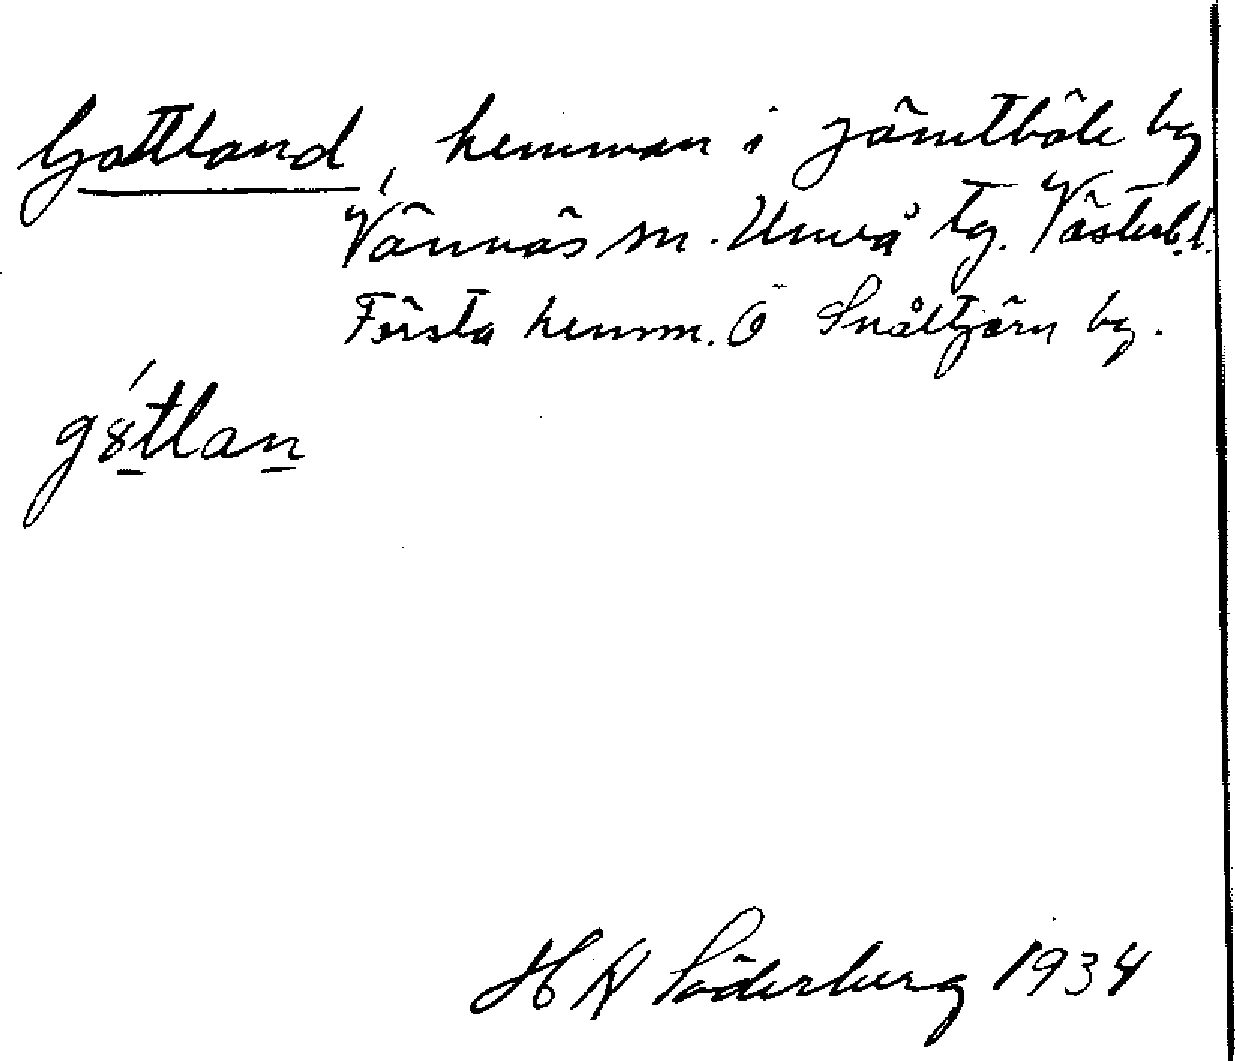 Gottland, hemman i Jämtböle by
Vännäs sn. Umeå tg. Västerb.l.
Första hemm. Ö Snåltjärn by.
gótlan
H A Söderberg 1934